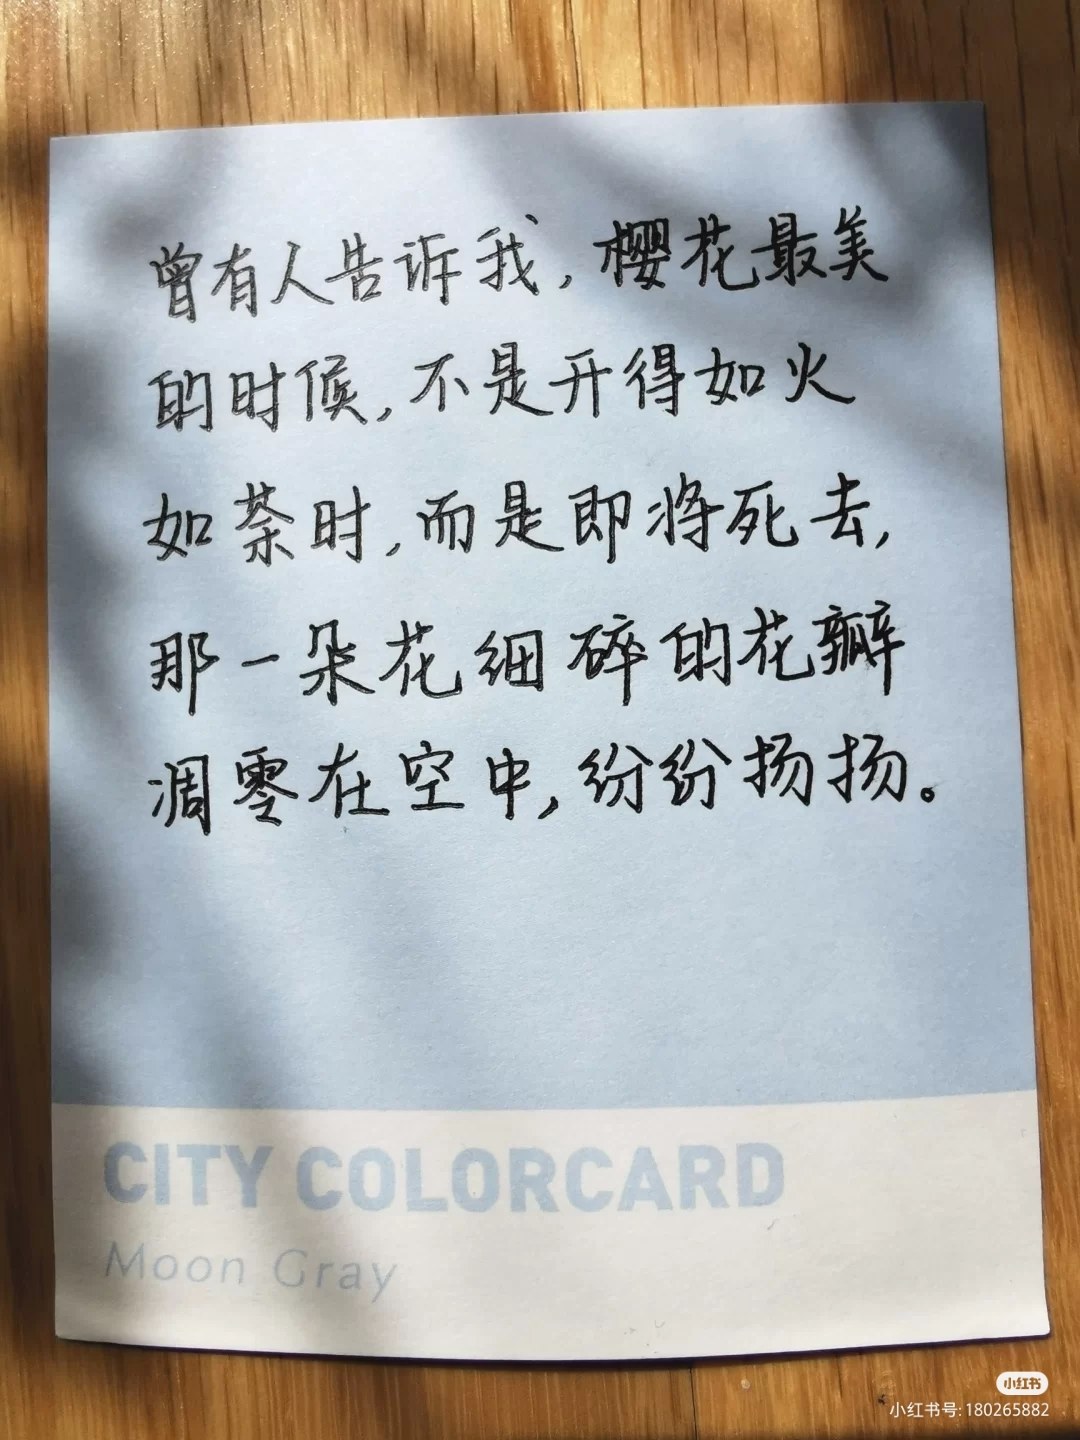 曾有人告诉我,樱花最美
的时候,不是开得如火
如荼时,而是即将死去,
那一朵花细碎的花瓣
凋零在空中,纷纷扬扬。
CITY COLORCARD
Moon Gray
小红书
小红书号:180265882